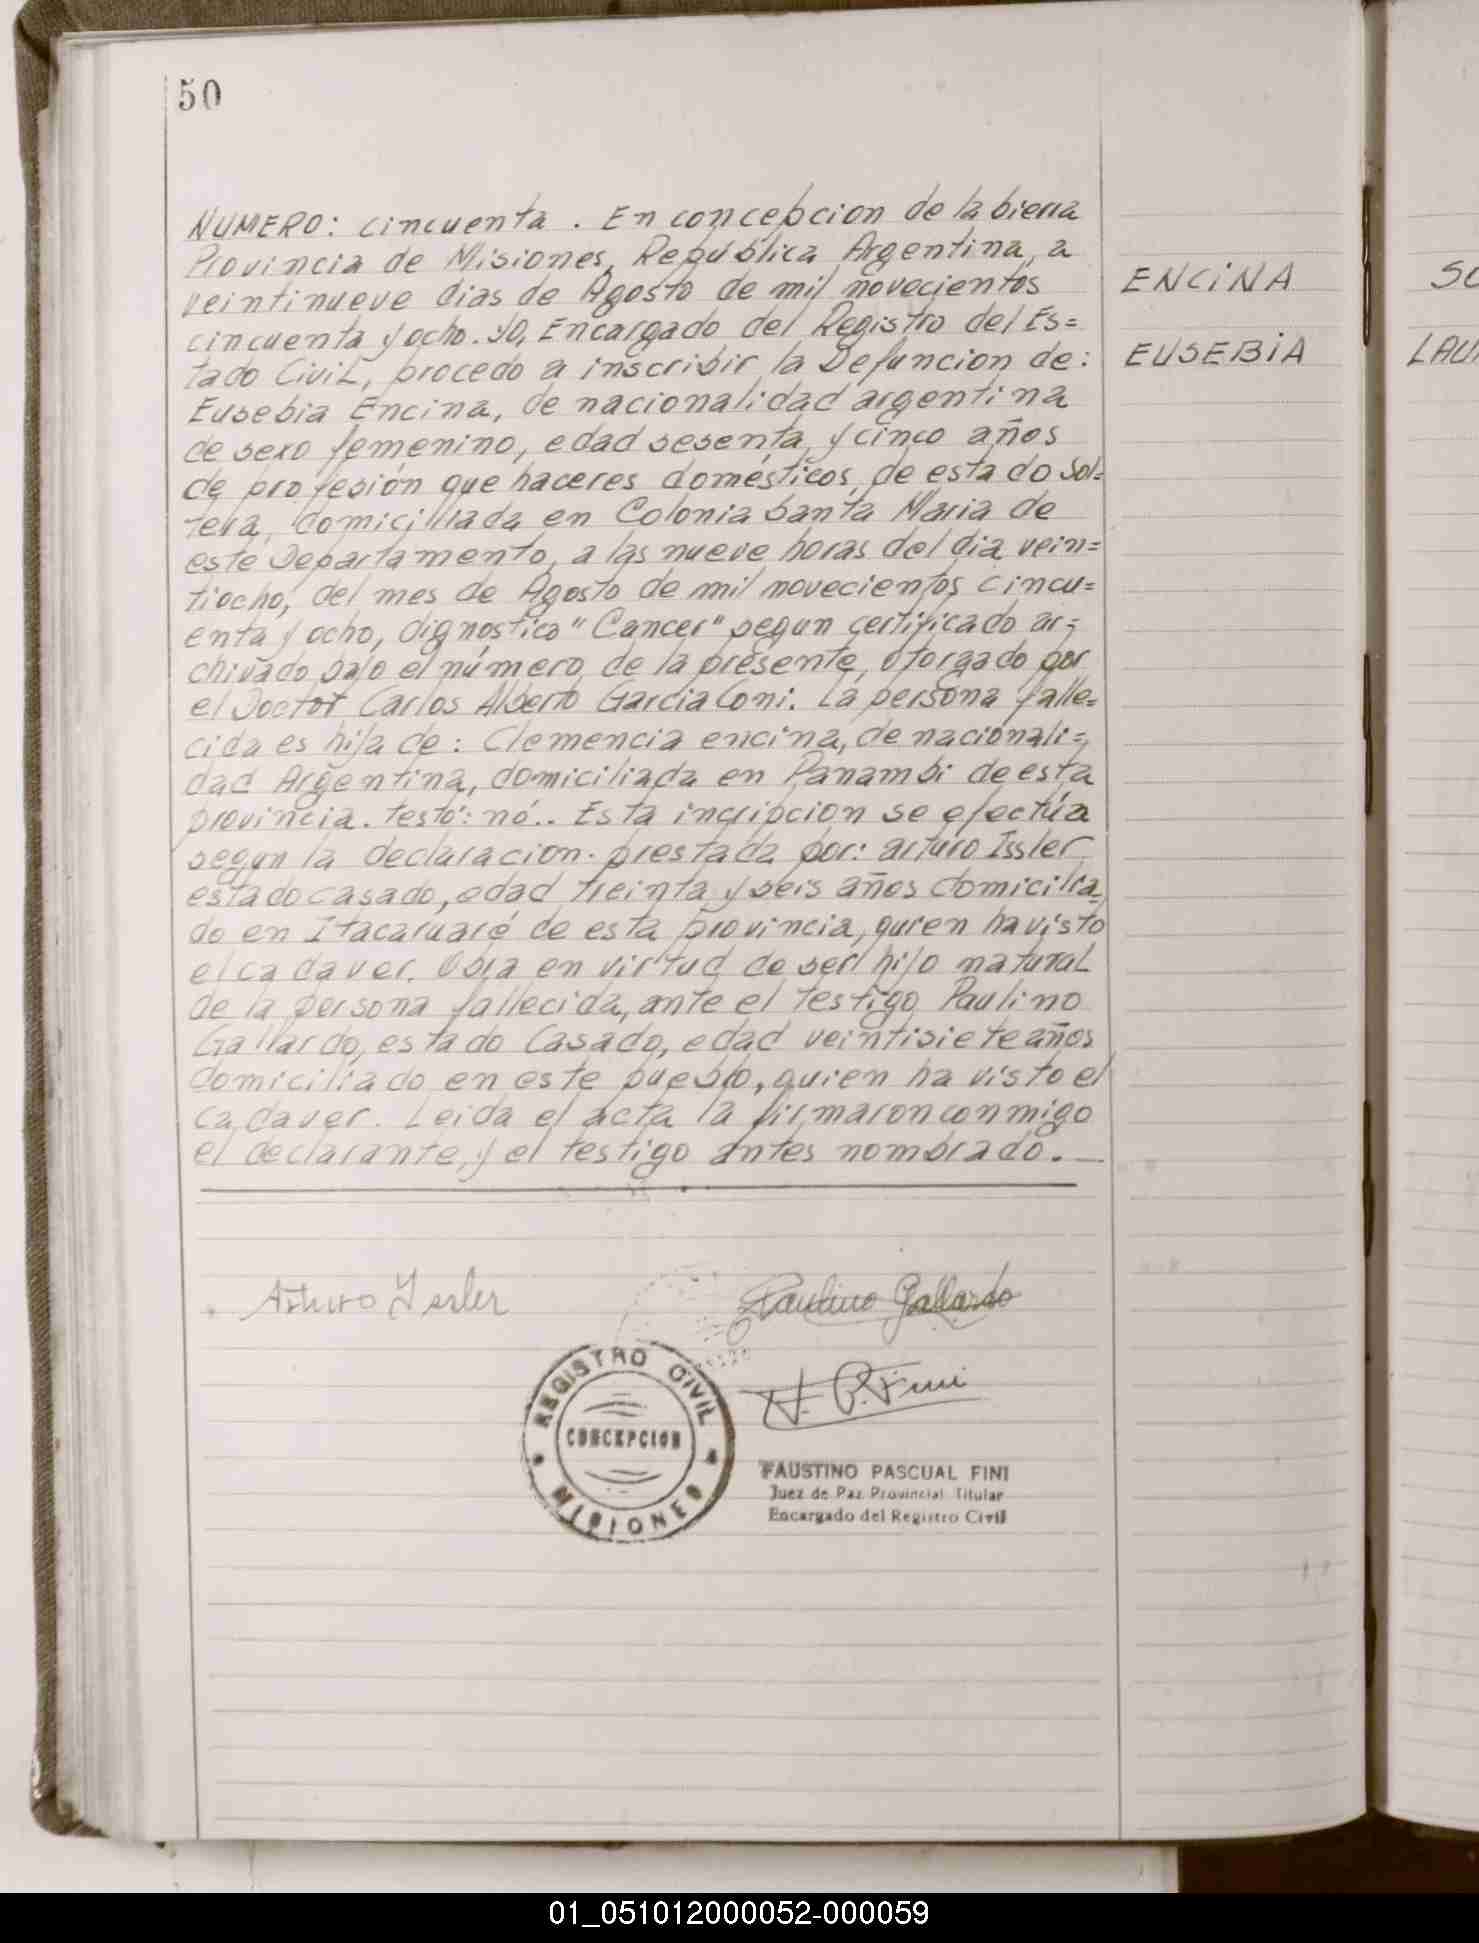 50
NUMERO: cincuenta . En concepcion de la sierra
Provincia de Misiones, República Argentina, a
veintinueve dias de Agosto de mil novecientos
cincuenta y ocho. YO, Encargado del Registro del Es=
tado CiviL, procedo a inscribir la Defuncion de:
Eusebia Encina, de nacionalidad argentina
de sexo femenino, edad sesenta y cinco años
de profesión que haceres domésticos, de estado sol=
tera, domiciliada en Colonia Santa Maria de
este Departamento, a las nueve horas del dia vein=
tiocho, del mes de Agosto de mil novecientos cincu=
enta y ocho, dignostico "Cancer" segun certificado ar=
chivado bajo el número de la présente, otorgado por
el Doctor Carlos Alberto Garcia Coni. La persona falle=
cida es hija de: Clemencia encina, de nacionali=
dad Argentina, domiciliada en Panambi de esta
provincia. testó: nó.. Esta incripcion se efectúa
segun la declaracion. prestada por: arturo Issler
estado casado, edad treinta y seis años domicilia=
do en Itacaruaré de esta provincia, quien ha visto
el cadaver. Obra en virtud de ser hijo natural
de la persona fallecida, ante el testigo Paulino
Gallardo, estado Casado, edad veintisiete años
domiciliado en este pueblo, quien ha visto el
cadaver. Leida el acta la firmaron conmigo
el declarante, y el testigo antes nombrado.
ENCiNA
EUSEBiA
SO
LAU
Arturo Issler
Paulino Gallardo
F. P. Fini
REGISTRO CIVIL
CONCEPCION
MISIONES
FAUSTINO PASCUAL FINI
Juez de Paz Provincial Titular
Encargado del Registro Civil
01_051012000052-000059